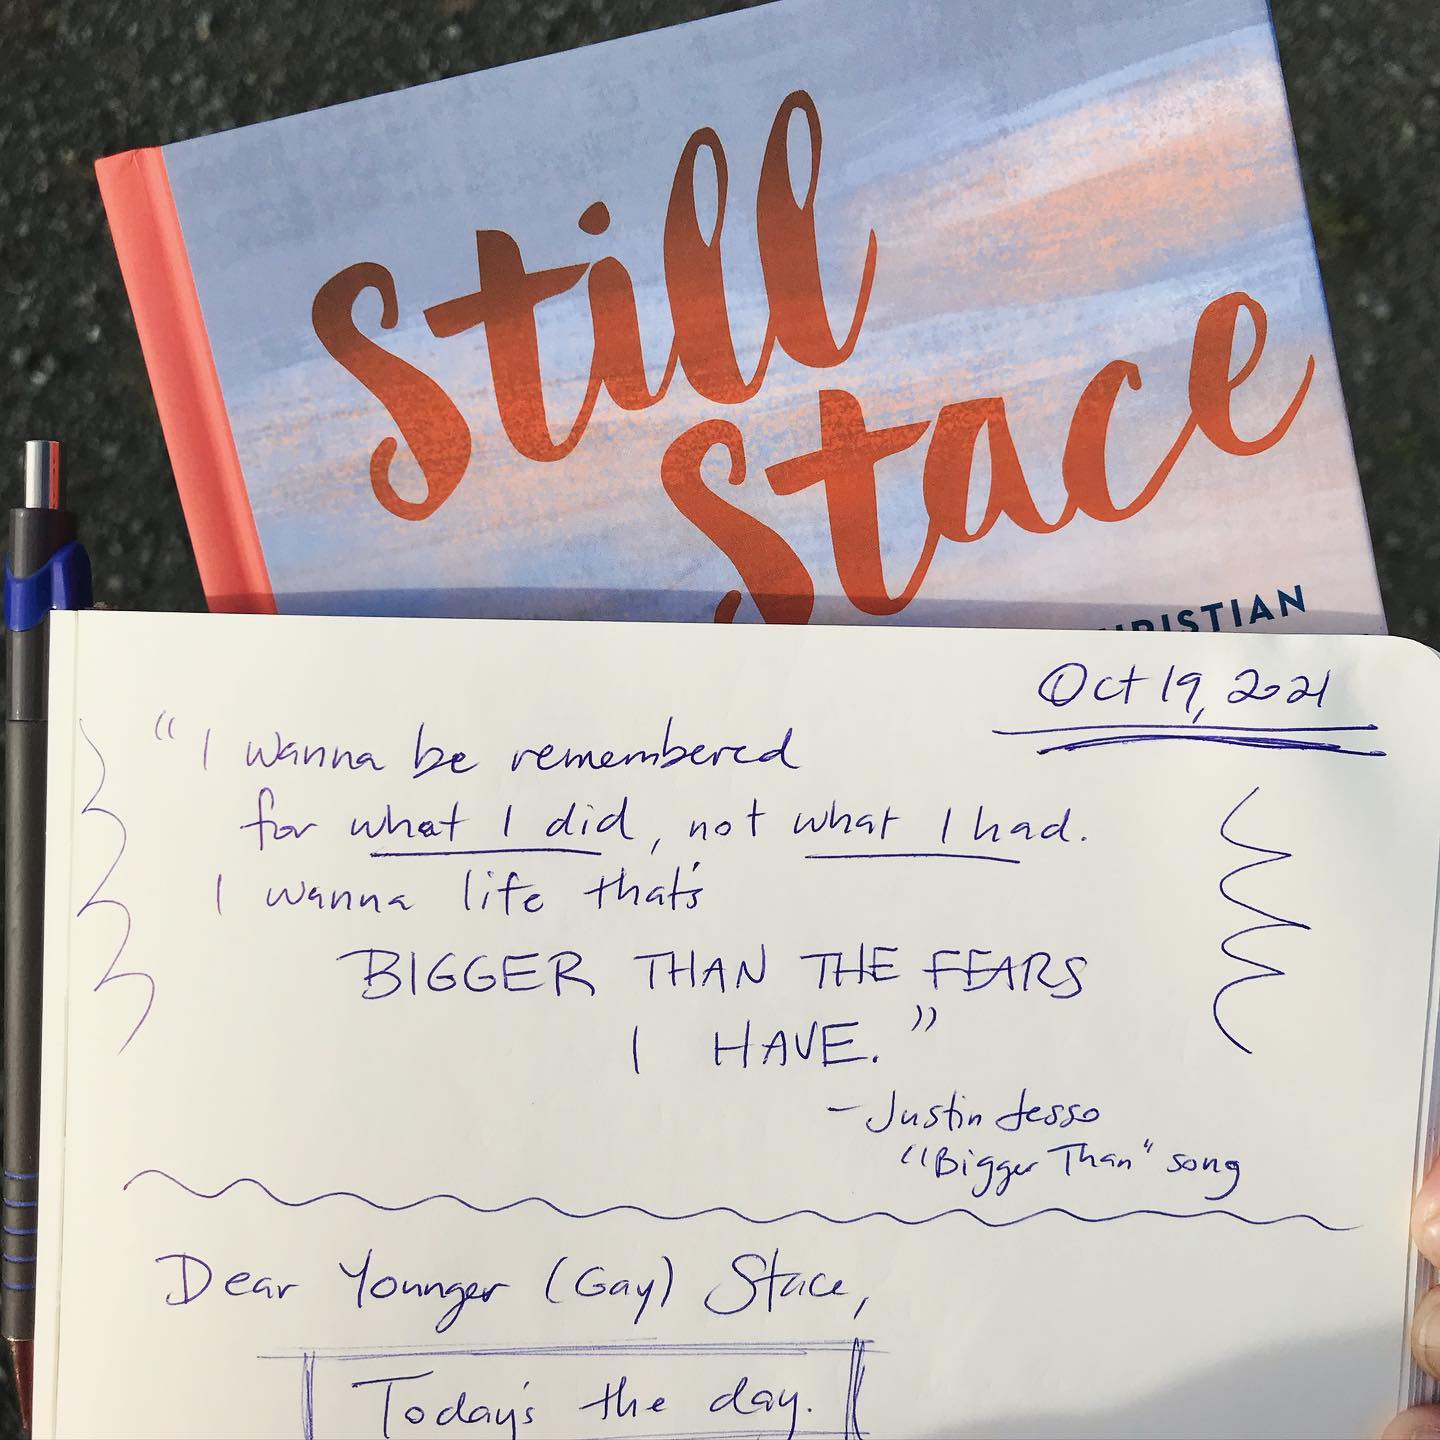 Still
Stace
CHRISTIAN
Oct 19, 2021
"I wanna be remembered
for what I did, not what I had.
I wanna life that's
BIGGER THAN THE FEARS
I HAVE."
- Justin Jesso
"Bigger Than" song
Dear Younger (Gay) Stace,
Today's the day.